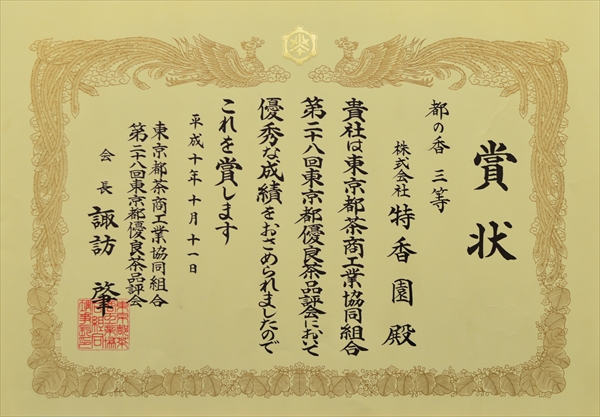 賞状
都の香 三等
株式会社 特香園殿
貴社は東京都茶商工業協同組合
第二十八回東京都優良茶品評会において
優秀な成績をおさめられましたので
これを賞します
平成十年十月十一日
東京都茶商工業協同組合
第二十八回東京都優良茶品評会
会長 諏訪 肇